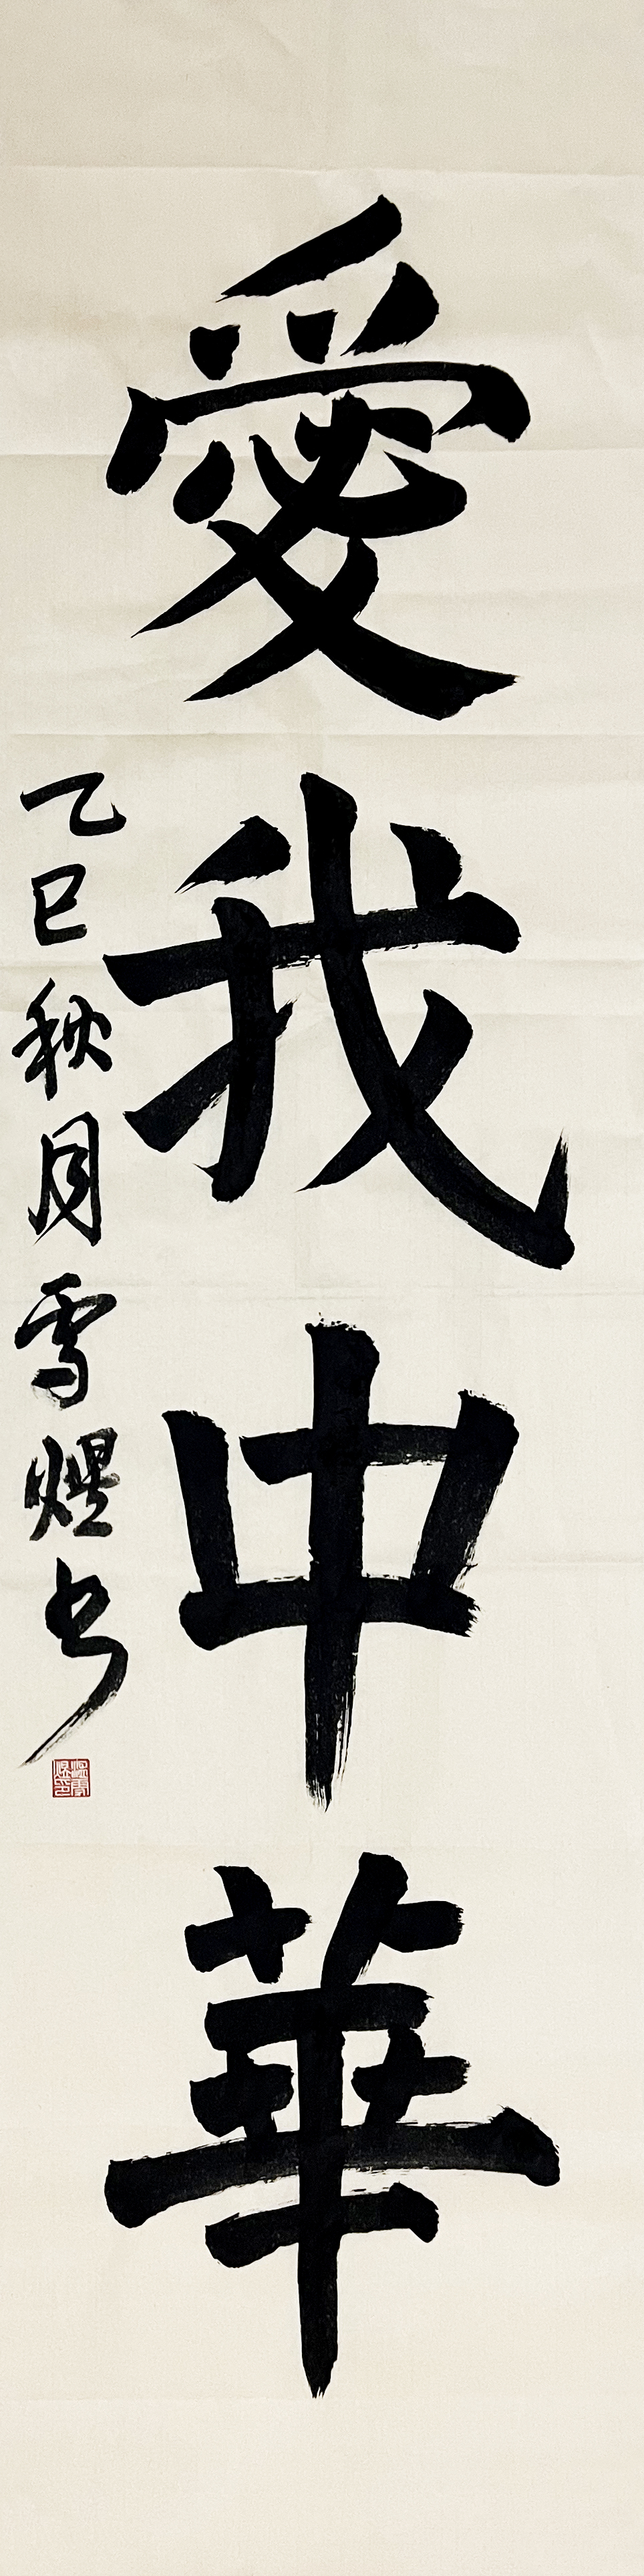 愛我中華
乙巳秋月雪煜书